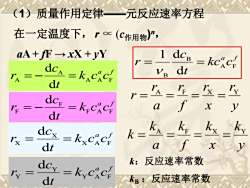 （1）质量作用定律——元反应速率方程
在一定温度下，r ∝ (c作用物)ⁿ，
aA + fF → xX + yY
r_A = −dc_A/dt = k_A c_A^a c_F^f
r_F = −dc_F/dt = k_F c_A^a c_F^f
r_X = dc_X/dt = k_X c_A^a c_F^f
r_Y = dc_Y/dt = k_Y c_A^a c_F^f
r = (1/ν_B) dc_B/dt = kc_A^a c_F^f
r = r_A/a = r_F/f = r_X/x = r_Y/y
k = k_A/a = k_F/f = k_X/x = k_Y/y
k：反应速率常数
k_B：反应速率常数